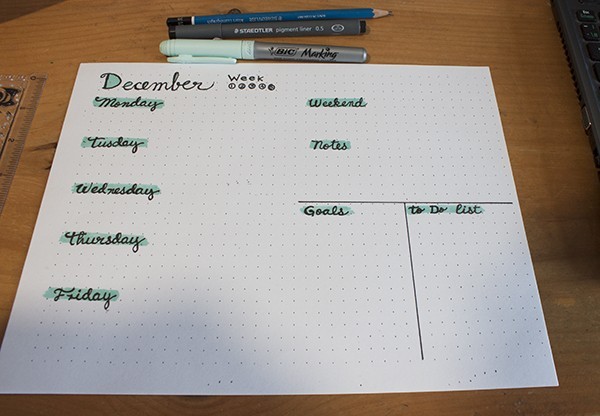 STAEDTLER pigment liner 0.5
BIC Marking
December
Week
1 2 3 4 5
Monday
Tusday
Wednesday
Thursday
Friday
Weekend
Notes
Goals
to Do list